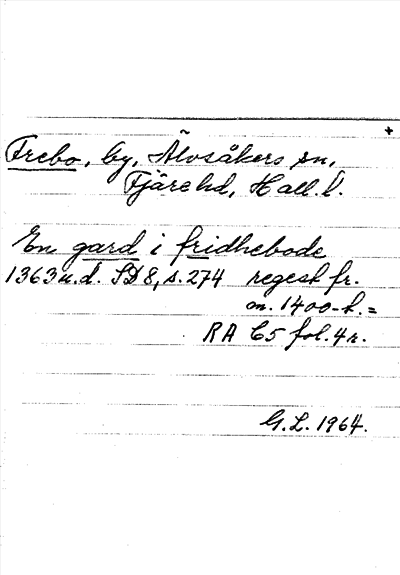 +
Frebo, by, Älvsåkers sn,
Fjäre hd, Hall. l.
En gard i fridhebode
1363 u.d. SD 8, s. 274 regest fr.
m. 1400-t. =
RA C5 fol. 4r.
G.L. 1964.